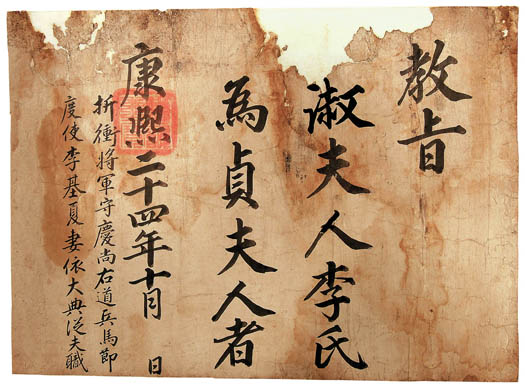 教旨
淑夫人李氏
為貞夫人者
康熙二十四年十月　日
折衝將軍守慶尚右道兵馬節
度使李基夏妻依大典從夫職